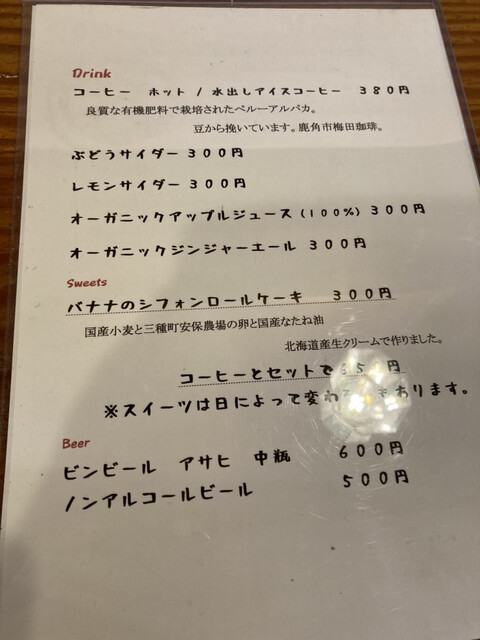 Drink
コーヒー ホット / 水出しアイスコーヒー 380円
良質な有機肥料で栽培されたペルーアルパカ。
豆から挽いています。鹿角市梅田珈琲。
ぶどうサイダー 300円
レモンサイダー 300円
オーガニックアップルジュース(100%) 300円
オーガニックジンジャーエール 300円
Sweets
バナナのシフォンロールケーキ 300円
国産小麦と三種町安保農場の卵と国産なたね油
北海道産生クリームで作りました。
コーヒーとセットで650円
※スイーツは日によって変わ あります。
Beer
ビンビール アサヒ 中瓶 600円
ノンアルコールビール 500円